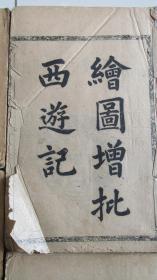 繪圖增批
西遊記